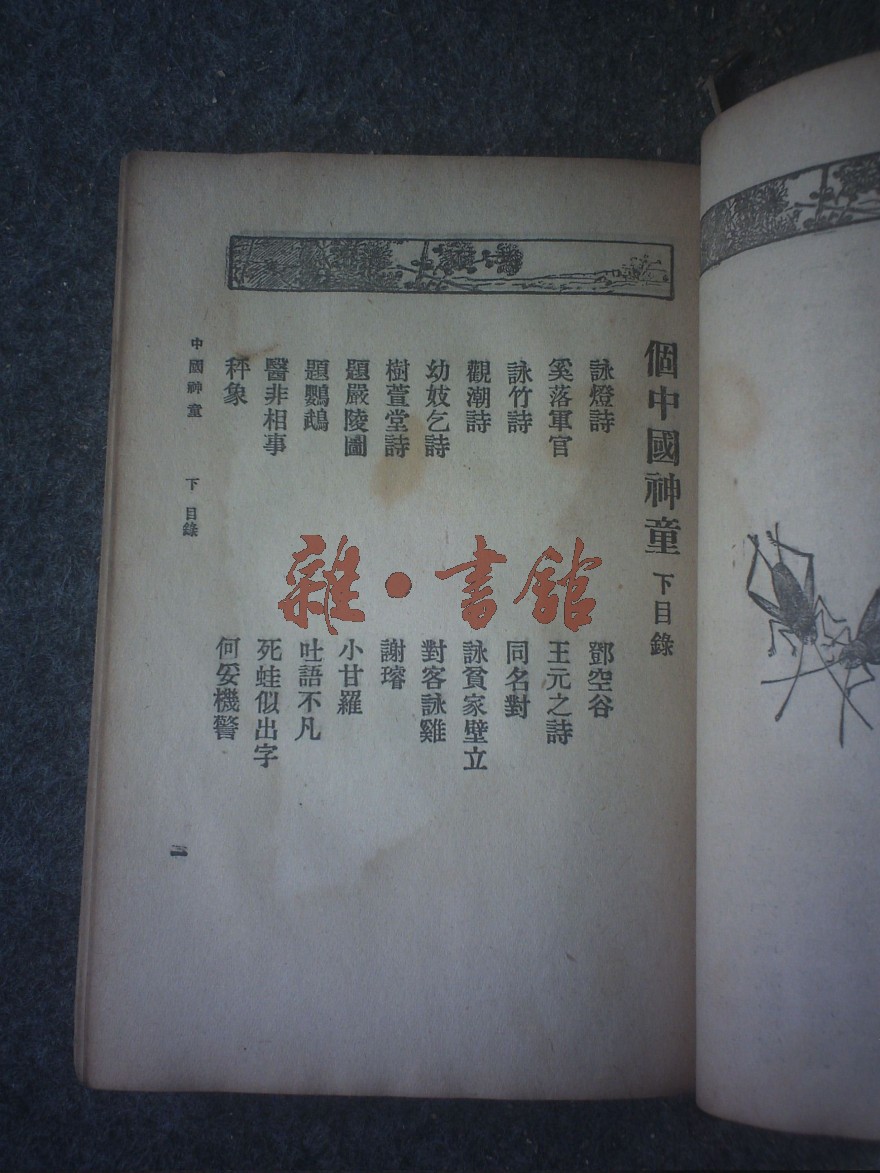 個中國神童 下目錄
詠燈詩
鄧空谷
奚落軍官
王元之詩
詠竹詩
同名對
觀潮詩
詠貧家壁立
幼妓乞詩
對客詠雞
樹萱堂詩
謝璿
題嚴陵圖
小甘羅
題鸚鵡
吐語不凡
醫非相事
死蛙似出字
秤象
何妥機警
中國神童 下 目錄
雜·書館